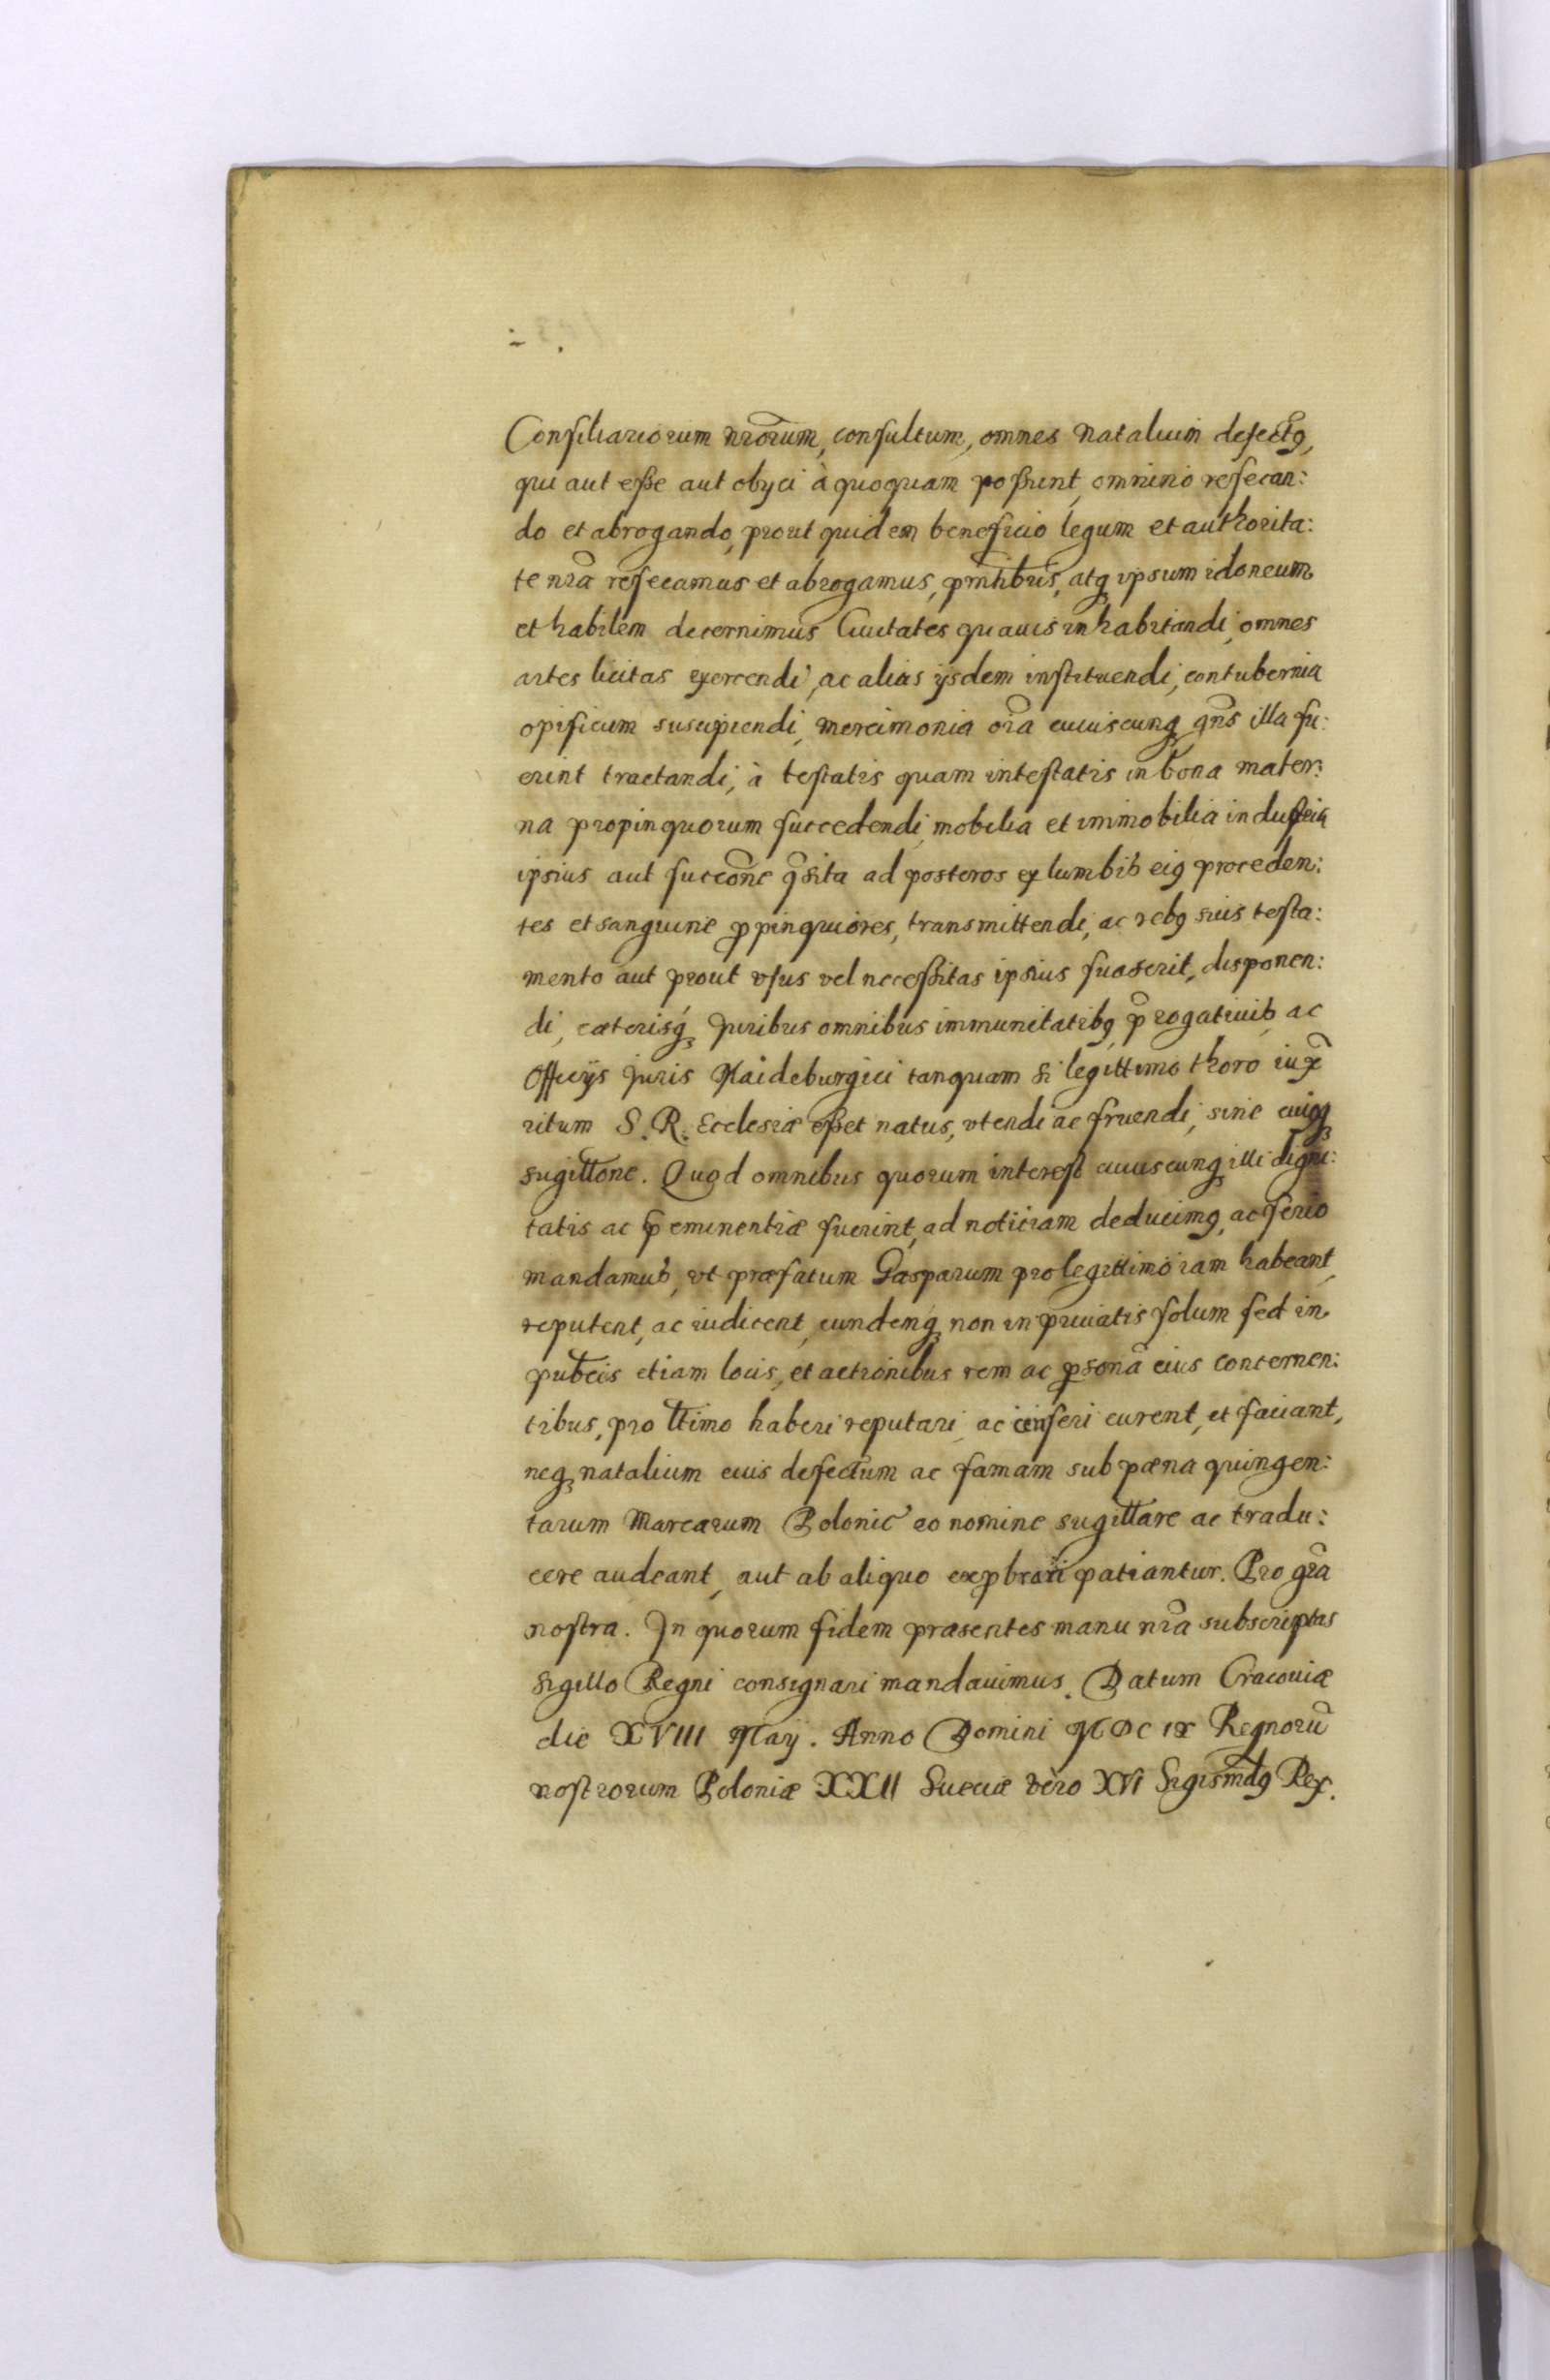 Consiliariorum nrorum, consultum, omnes natalium defectꝰ,
qui aut esse aut obyci à quoquam possunt, omnino resecan:
do et abrogando, prout quidem beneficio legum et authorita:
te nra resecamus et abrogamus, pntibus, atqꝫ ipsum idoneum
et habilem decernimus Ciuitates quauis inhabitandi, omnes
artes licitas exercendi, ac alias ijsdem instituendi, contubernia
opificum suscipiendi, mercimonia oia cuiuscunqꝫ gnis illa fu:
erint tractandi, à testatis quam intestatis in bona mater:
na propinquorum succedendi, mobilia et immobilia industria
ipsius aut succone qsita ad posteros ex lumbis eiꝰ proceden:
tes et sanguine ꝓpinquiores, transmittendi, ac rebꝰ suis testa:
mento aut prout vsus vel necessitas ipsius suaserit, disponen:
di, cæterisqꝫ Juribus omnibus immunitatibꝰ, progatiuis ac
Officijs Juris Maideburgici tanquam si legittimo thoro iux
ritum S. R. Ecclesiæ esset natus, vtendi ac fruendi, sine cuiusqꝫ
sugillone. Quod omnibus quorum interest cuiuscunqꝫ illi digni:
tatis ac peminentiæ fuerint, ad noticiam deducimꝰ, ac serio
mandamus, vt præfatum Gasparum pro legittimo iam habeant,
reputent, ac iudicent, eundemqꝫ non in priuatis solum sed in
publcis etiam locis, et actionibus rem ac ꝑsona eius concernen:
tibus, pro ltimo haberi reputari ac censeri curent, et faciant,
neqꝫ natalium eius defectum ac famam sub pæna quingen:
tarum Marcarum Polonic eo nomine sugillare ac tradu:
cere audeant, aut ab aliquo exꝓbrari patiantur. Pro gra
nostra. In quorum fidem præsentes manu nra subscriptas
Sigillo Regni consignari mandauimus. Datum Cracouiæ
die XVIII May. Anno Domini MDC IX Regnorū
nostrorum Poloniæ XXII Sueciæ vero XVI Sigismdꝰ Rex.